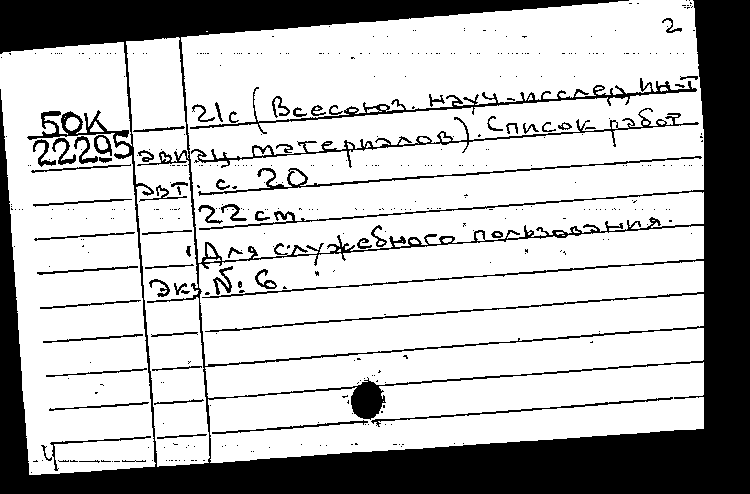 2
50К 21с (Всесоюз. науч.-исслед. ин-т
22295 авиац. материалов). Список работ
авт.: с. 20.
22 cm.
Для служебного пользования.
Экз. № 6.
4